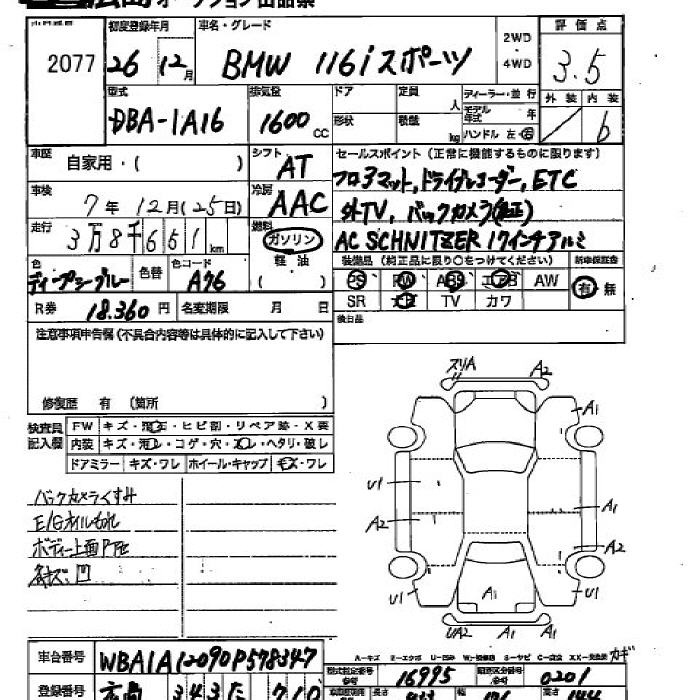 オークション出品票
2077
初度登録年月
26年12月
車名・グレード
BMW 116i スポーツ
2WD・4WD
評価点
3.5
外装 内装
b
型式
DBA-1A16
排気量
1600cc
ドア
定員 人
形状
積載 kg
ディーラー・並行
モデル年式 年
ハンドル 左 右
車歴
自家用・( )
シフト
AT
セールスポイント(正常に機能するものに限ります)
フロアマット,ドライブレコーダー,ETC
外TV, バックカメラ(純正)
AC SCHNITZER 17インチアルミ
車検
7年12月(25日)
冷房
AAC
走行
3万8千651km
燃料
ガソリン
軽油
( )
色
ディープシーブルー
色替
色コード
A76
装備品(純正品に限り○をつけてください)
PS PW ABS エアB AW
SR TV カワ
新車保証書
有・無
R券 18.360円
名変期限 月 日
後日品
注意事項申告欄(不具合内容等は具体的に記入して下さい)
修復歴 有 (箇所 )
検査員記入欄
FW キズ・飛石・ヒビ割・リペア跡・X要
内装 キズ・汚レ・コゲ・穴・スレ・ヘタリ・破レ
ドアミラー キズ・ワレ ホイール・キャップ キズ・ワレ
バックカメラくすみ
E/Gオイルもれ
ボディー上面
スリA
A2
A1
U1
A1
A2
A2
U1
A1
U1
UA2
A1
A-キズ E-エクボ U-凹み W-補修跡 S-サビ C-腐食 XX-交換済
カギ
車台番号
WBA1A12090P578347
型式指定番号
16995
類別区分番号
0201
登録番号
広島 343 た 710
長さ
幅
高さ